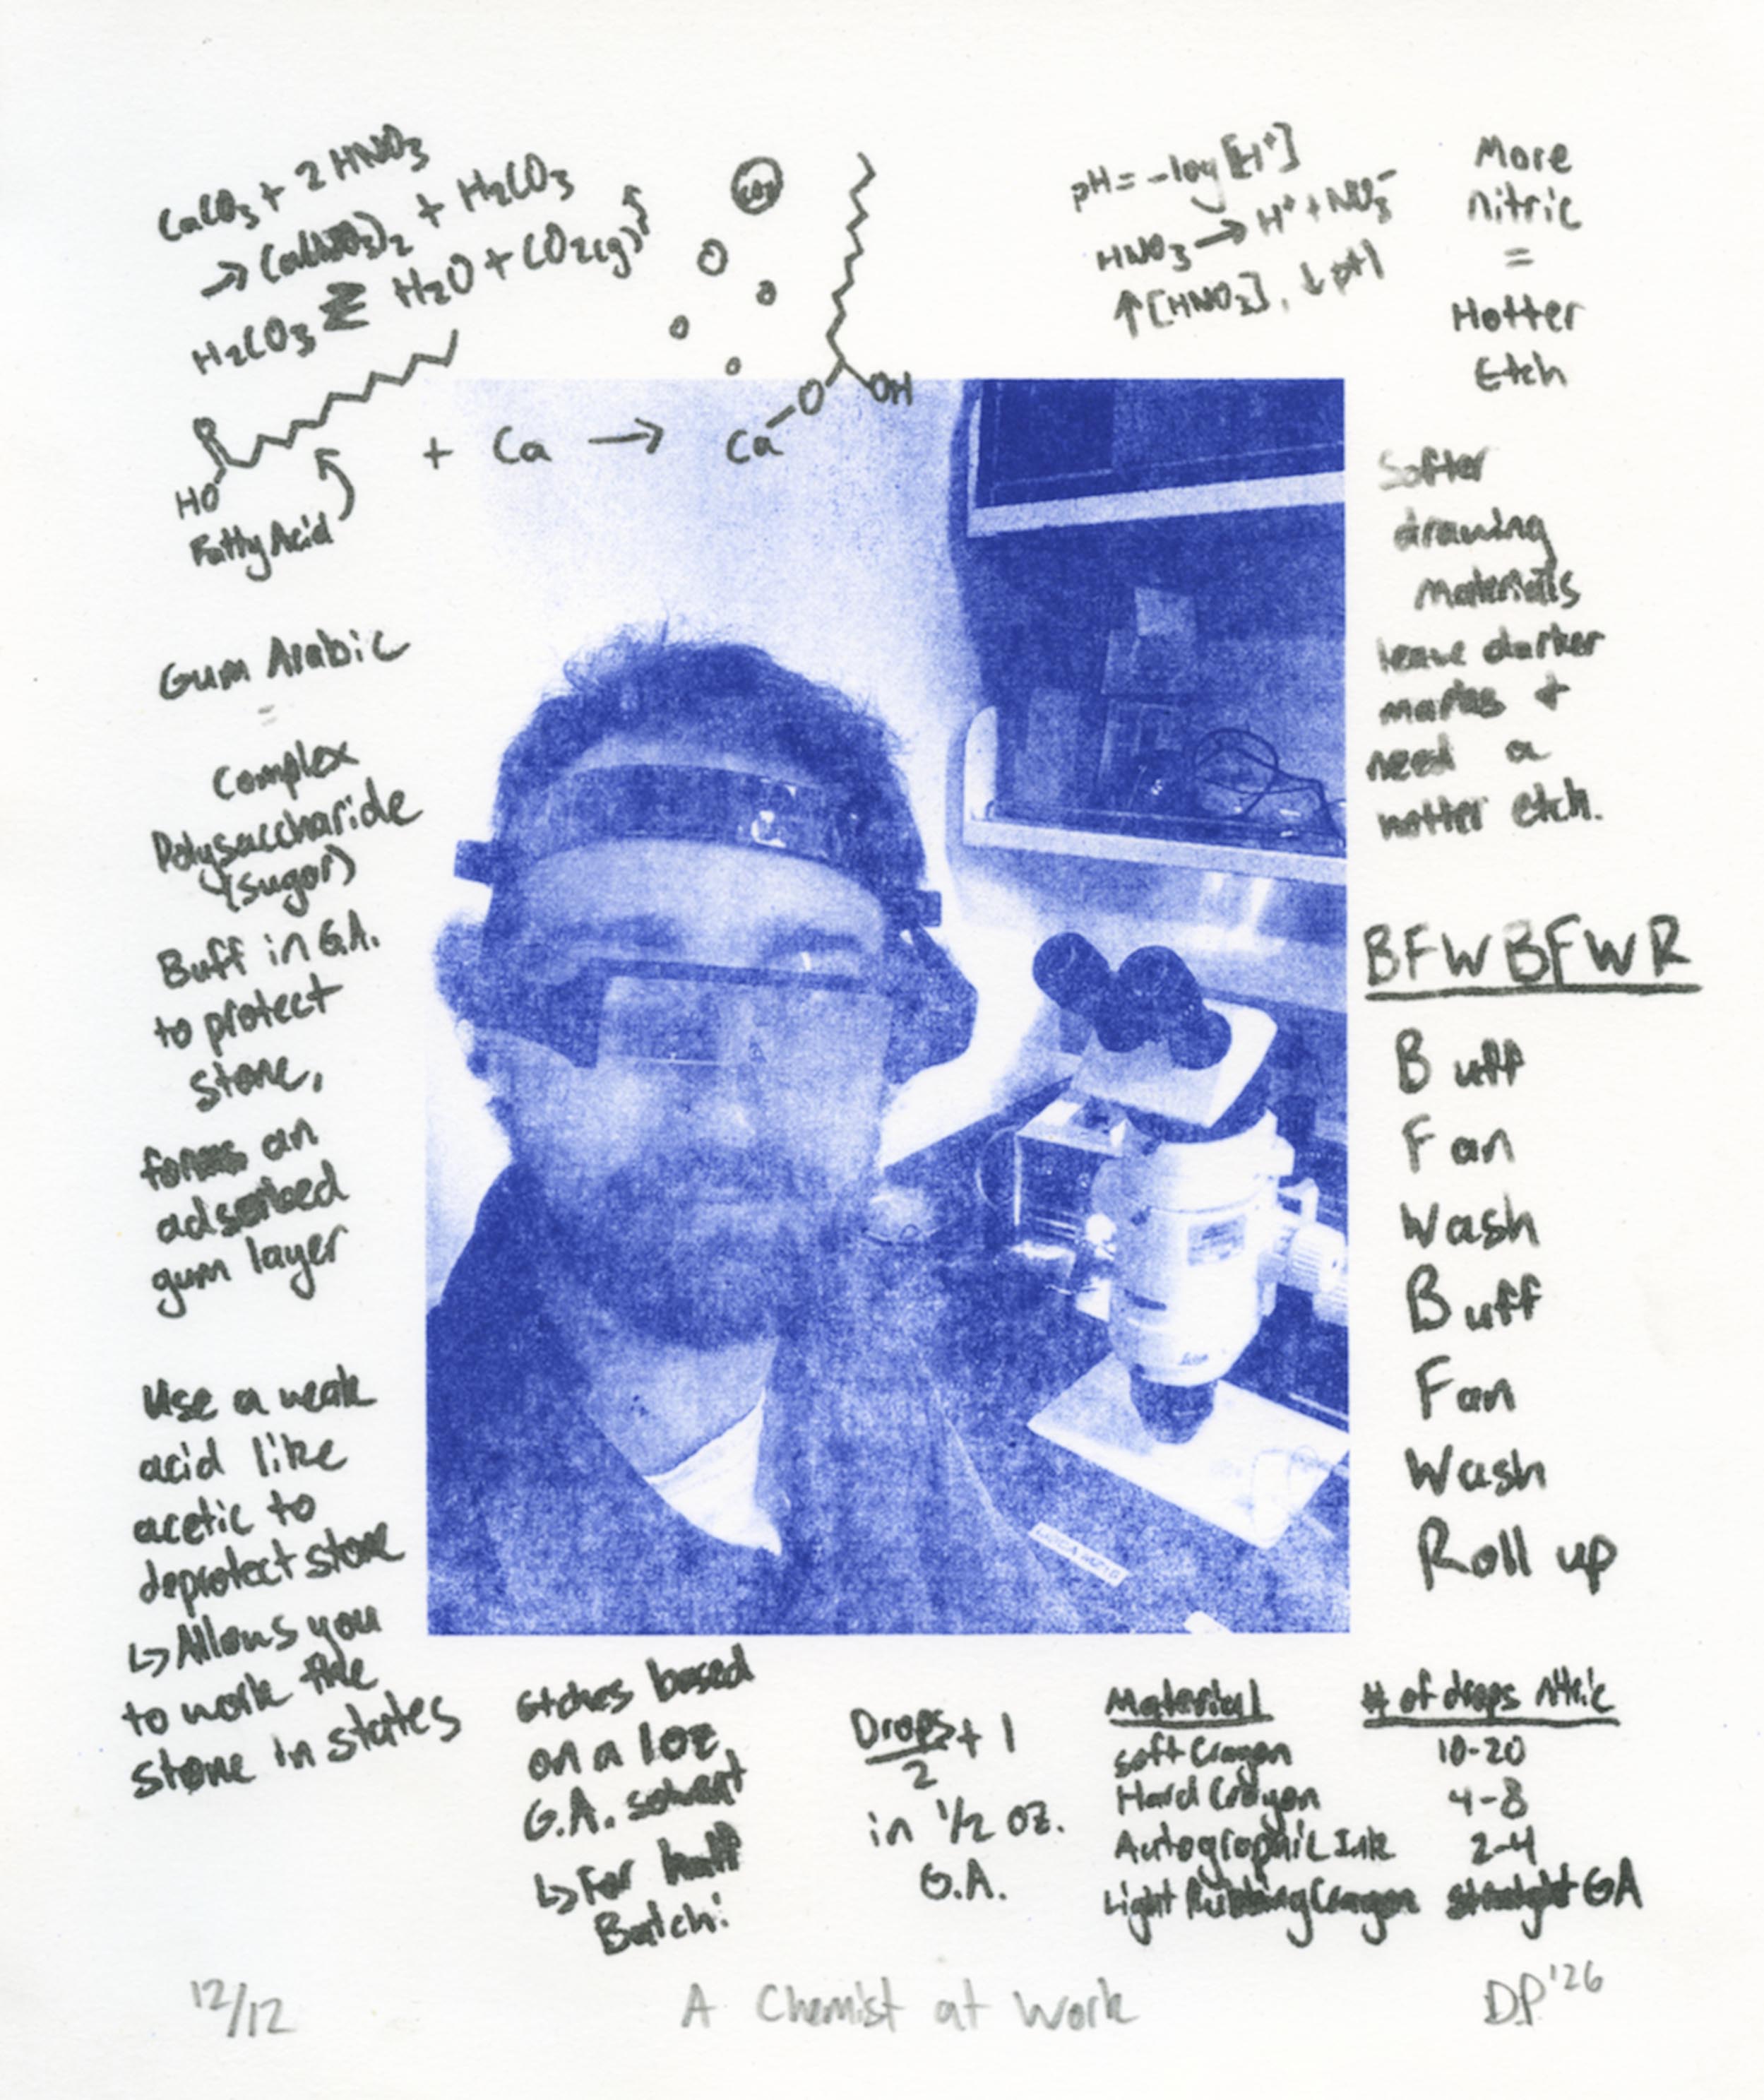 CaCO3 + 2 HNO3
→ Ca(NO3)2 + H2CO3
H2CO3 ⇄ H2O + CO2(g)↑
CO2
HO
Fatty Acid
+ Ca →
Ca
O
OH
pH = -log[H+]
HNO3 → H+ + NO3-
↑[HNO3], ↓pH
More
nitric
=
Hotter
Etch
Softer
drawing
materials
leave darker
marks +
need a
hotter etch.
BFWBFWR
Buff
Fan
Wash
Buff
Fan
Wash
Roll up
Gum Arabic
=
Complex
Polysaccharide
(sugar)
Buff in G.A.
to protect
stone,
forms an
adsorbed
gum layer
Use a weak
acid like
acetic to
deprotect stone
↳ Allows you
to work the
stone in states
Etches based
on a 1oz
G.A. solvent
↳ For half
Batch:
Drops/2 + 1
in 1/2 oz.
G.A.
Material # of drops nitric
Soft Crayon 10-20
Hard Crayon 4-8
Autographic Ink 2-4
Light Rubbing Crayon straight GA
12/12 A Chemist at Work DP '26